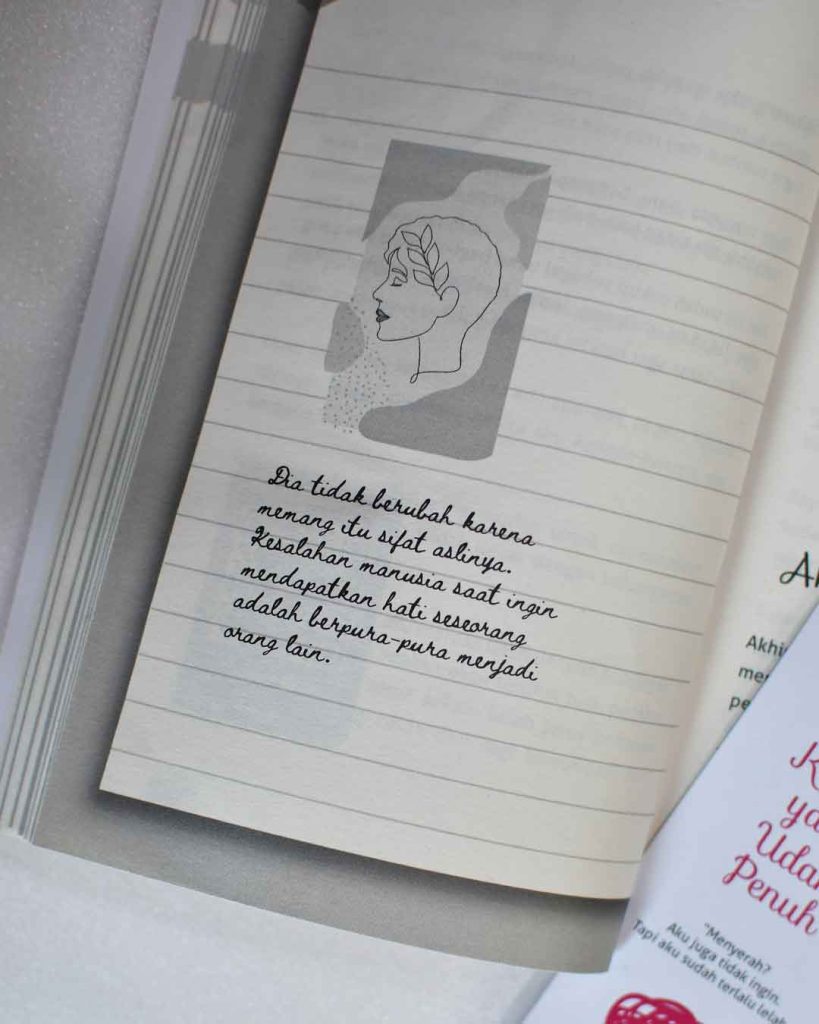 Dia tidak berubah karena
memang itu sifat aslinya.
Kesalahan manusia saat ingin
mendapatkan hati seseorang
adalah berpura-pura menjadi
orang lain.
Penuh
"Menyerah?
Aku juga tidak ingin.
Tapi aku sudah terlalu